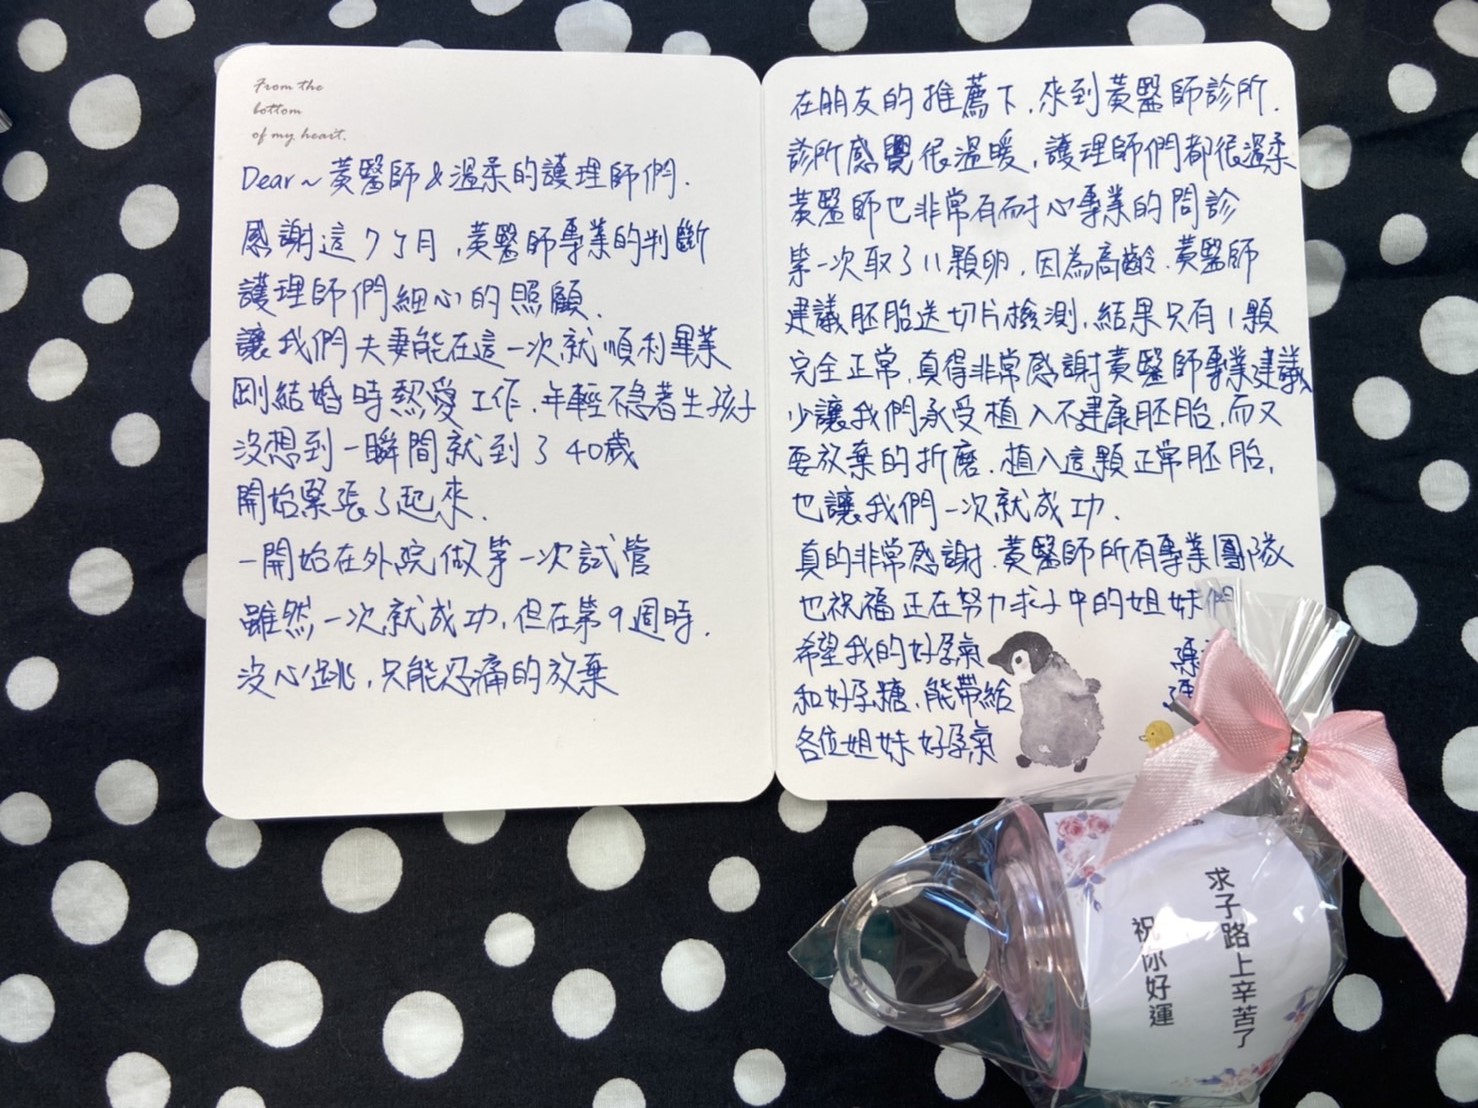 From the
bottom
of my heart.
Dear~黃醫師&溫柔的護理師們.
感謝這7个月,黃醫師專業的判斷
護理師們細心的照顧.
讓我們夫妻能在這一次就順利畢業
剛結婚時熱愛工作.年輕不急著生孩子
沒想到一瞬間就到了40歲
開始緊張了起來.
一開始在外院做第一次試管
雖然一次就成功,但在第9週時.
沒心跳,只能忍痛的放棄
在朋友的推薦下,來到黃醫師診所.
診所感覺很溫暖,護理師們都很溫柔
黃醫師也非常有耐心專業的問診
第一次取了11顆卵,因為高齡.黃醫師
建議胚胎送切片檢測,結果只有1顆
完全正常.真得非常感謝黃醫師專業建議
少讓我們承受植入不健康胚胎,而又
要放棄的折磨.植入這顆正常胚胎,
也讓我們一次就成功.
真的非常感謝.黃醫師所有專業團隊
也祝福正在努力求子中的姐妹們
希望我的好孕氣
和好孕糖.能帶給
各位姐妹好孕氣
求子路上辛苦了
祝你好運